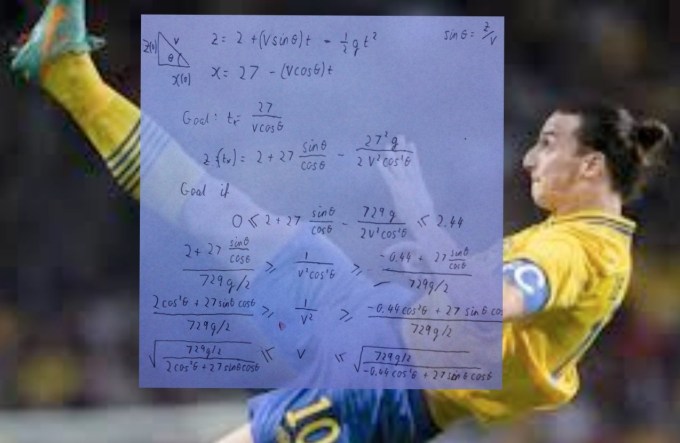 z = 2 + (v sinθ)t - ½gt²
sinθ = ż/v
ż(0) v θ ẋ(0)
x = 27 - (v cosθ)t
Goal: tₓ = 27/(v cosθ)
z(tₓ) = 2 + 27 sinθ/cosθ - 27²g/(2v²cos²θ)
Goal if
0 ≤ 2 + 27 sinθ/cosθ - 729g/(2v²cos²θ) ≤ 2.44
(2 + 27 sinθ/cosθ)/(729g/2) ≥ 1/(v²cos²θ) ≥ (-0.44 + 27 sinθ/cosθ)/(729g/2)
(2cos²θ + 27 sinθ cosθ)/(729g/2) ≥ 1/v² ≥ (-0.44 cos²θ + 27 sinθ cos)/(729g/2)
√((729g/2)/(2cos²θ + 27 sinθ cosθ)) ≤ v ≤ √((729g/2)/(-0.44 cos²θ + 27 sinθ cosθ))
10